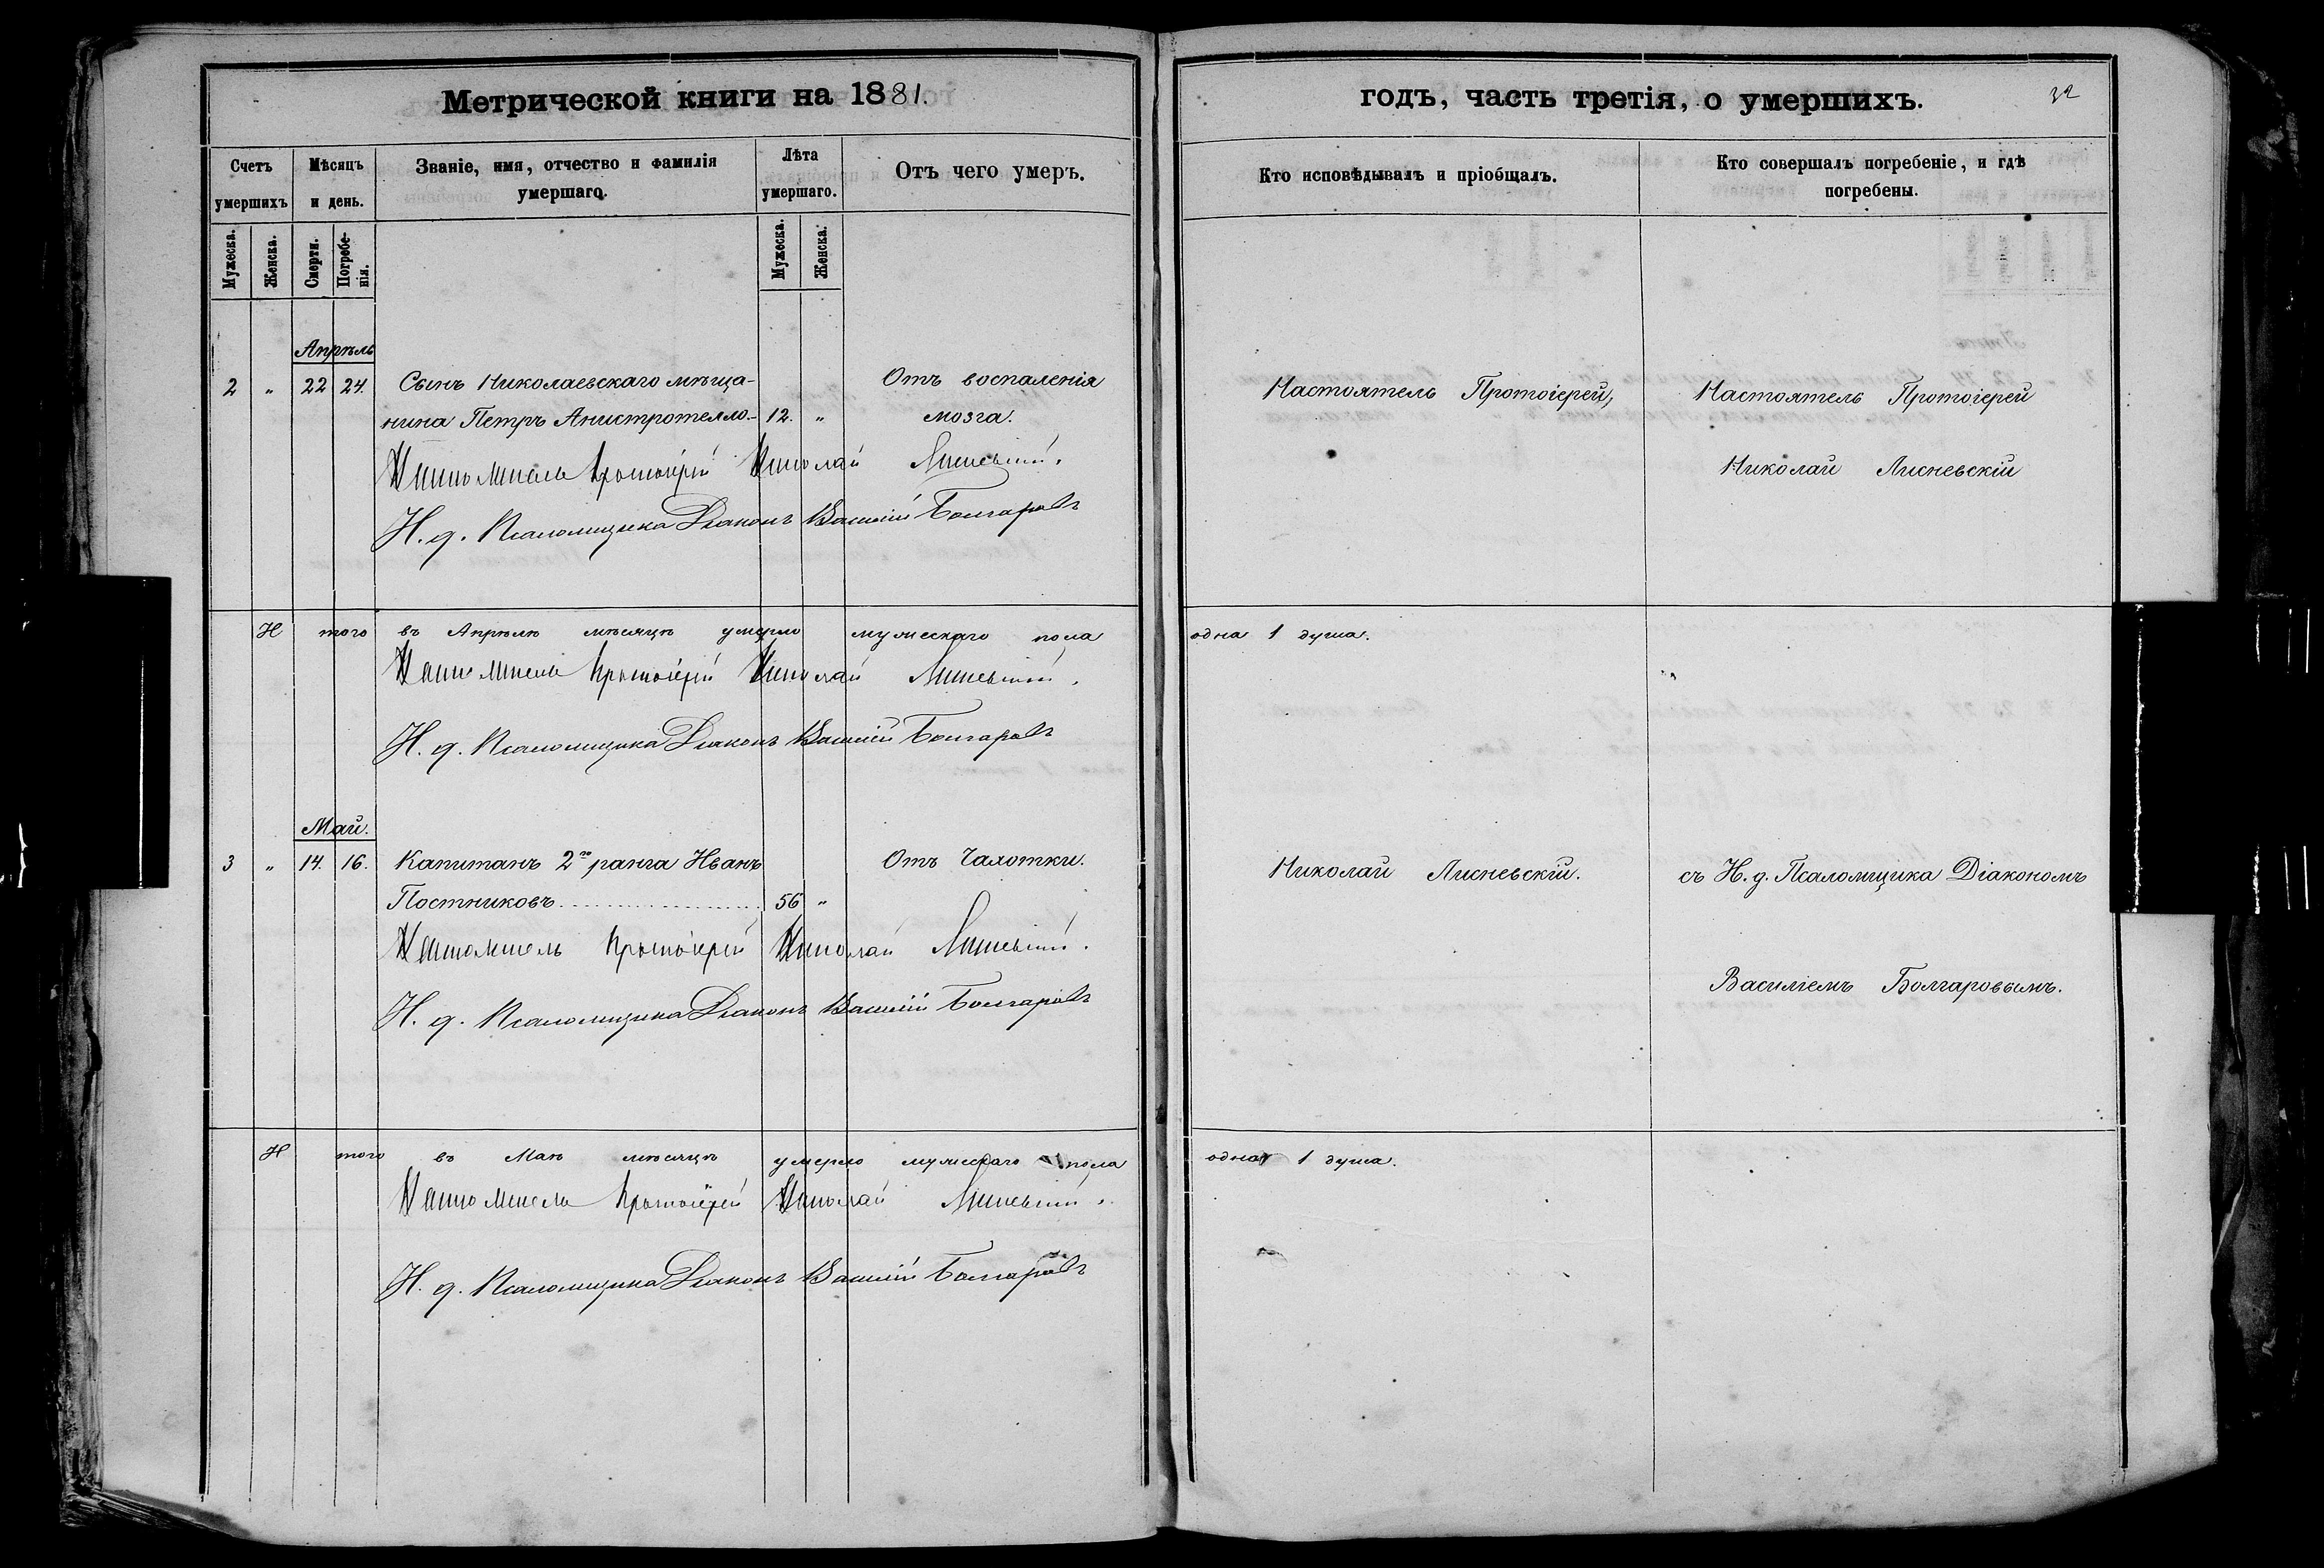 Метрической книги на 1881.
Счетъ умершихъ
Мѣсяцъ и день.
Званіе, имя, отчество и фамилія
умершаго.
Лѣта
умершаго.
Отъ чего умеръ.
Мужеска.
Женска.
Смерти.
Погребе-
нія.
Мужеска.
Женска.
Апрѣль
2 " 22 24. Сынъ Николаевскаго мѣща- Отъ воспаленія
нина Петръ Анистротелло- 12. " мозга.
Настоятель Протоіерей Николай Лисневскій.
И. д. Псаломщика Діаконъ Василій Болгаровъ
И того въ Апрѣлѣ мѣсяцѣ умерло мужескаго пола
Настоятель Протоіерей Николай Лисневскій.
И. д. Псаломщика Діаконъ Василій Болгаровъ
Май.
3 " 14. 16. Капитанъ 2го ранга Иванъ Отъ Чахотки.
Постниковъ 56 "
Настоятель Протоіерей Николай Лисневскій.
И. д. Псаломщика Діаконъ Василій Болгаровъ
И того въ Маѣ мѣсяцѣ умерло мужескаго пола
Настоятель Протоіерей Николай Лисневскій.
И. д. Псаломщика Діаконъ Василій Болгаровъ
годъ, часть третія, о умершихъ.
32
Кто исповѣдывалъ и пріобщалъ.
Кто совершалъ погребеніе, и гдѣ
погребены.
Настоятель Протоіерей, Настоятель Протоіерей
Николай Лисневскій
одна 1 душа.
Николай Лисневскій. съ И. д. Псаломщика Діакономъ
Василіемъ Болгаровымъ.
одна 1 душа.